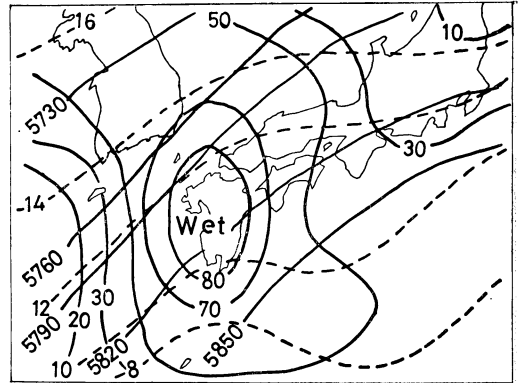 -16
50
10
5730
30
-14
Wet
5760
80
12
30
70
5790
20
5820
5850
10
-8